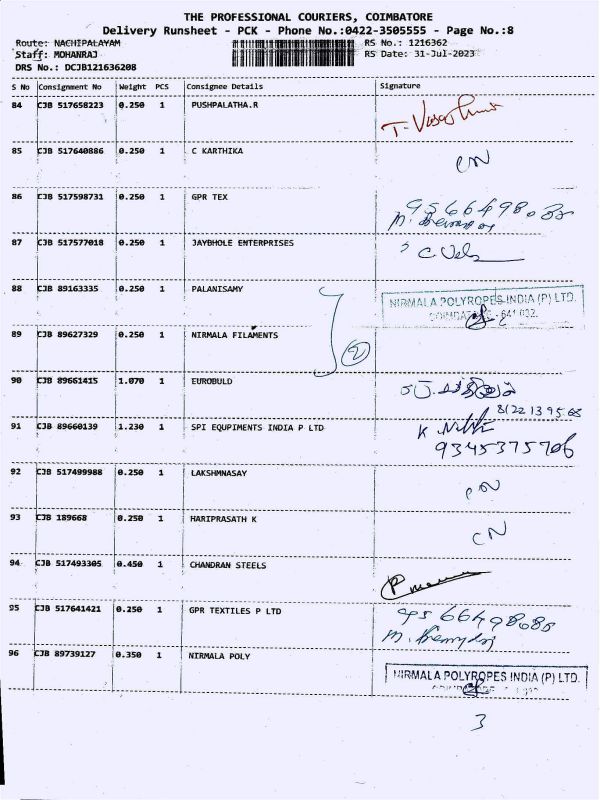 THE PROFESSIONAL COURIERS, COIMBATORE
Delivery Runsheet - PCK - Phone No.:0422-3505555 - Page No.:8
Route: NACHIPALAYAM RS No.: 1216362
Staff: MOHANRAJ RS Date: 31-Jul-2023
DRS No.: DCJB121636208
S No Consignment No Weight PCS Consignee Details Signature
84 CJB 517658223 0.250 1 PUSHPALATHA.R
85 CJB 517640886 0.250 1 C KARTHIKA CN
86 CJB 517598731 0.250 1 GPR TEX 9566498088
87 CJB 517577018 0.250 1 JAYBHOLE ENTERPRISES
88 CJB 89163335 0.250 1 PALANISAMY NIRMALA POLYROPES INDIA (P) LTD.
COIMBATORE - 641 032.
89 CJB 89627329 0.250 1 NIRMALA FILAMENTS
2
90 CJB 89661415 1.070 1 EUROBULD
8122139568
91 CJB 89660139 1.230 1 SPI EQUPIMENTS INDIA P LTD
9345375706
92 CJB 517499988 0.250 1 LAKSHMNASAY CN
93 CJB 189668 0.250 1 HARIPRASATH K CN
94 CJB 517493305 0.450 1 CHANDRAN STEELS
95 CJB 517641421 0.250 1 GPR TEXTILES P LTD 9566498088
96 CJB 89739127 0.350 1 NIRMALA POLY NIRMALA POLYROPES INDIA (P) LTD.
3